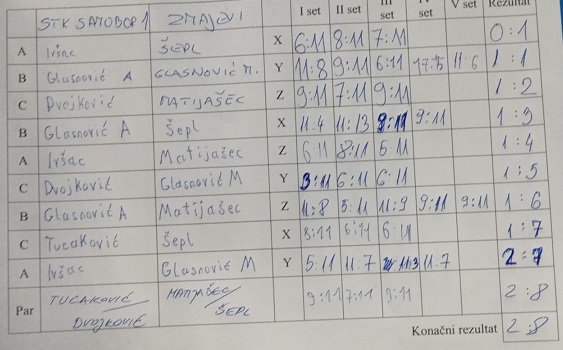 STK SAMOBOR 1 ZMAJEVI I set II set III set set V set Rezultat
A Ivšac ŠEPL X 6:11 8:11 7:11 0:1
B Glasnović A GLASNOVIĆ M. Y 11:8 9:11 6:11 11:6 1:1
C Dvojković MATIJAŠEC Z 9:11 7:11 9:11 1:2
B Glasnović A Šepl X 11:4 11:13 9:11 1:3
A Ivšac Matijašec Z 6:11 8:11 5:11 1:4
C Dvojković Glasnović M Y 3:11 6:11 6:11 1:5
B Glasnović A Matijašec Z 11:8 5:11 11:9 9:11 9:11 1:6
C Tucaković Šepl X 6:11 6:11 1:7
A Ivšac Glasnović M Y 5:11 11:7 11:3 11:7 2:7
Par TUCAKOVIĆ/ MATIJAŠEC/ 9:11 7:11 9:11 2:8
DVOJKOVIĆ ŠEPL
Konačni rezultat 2:8